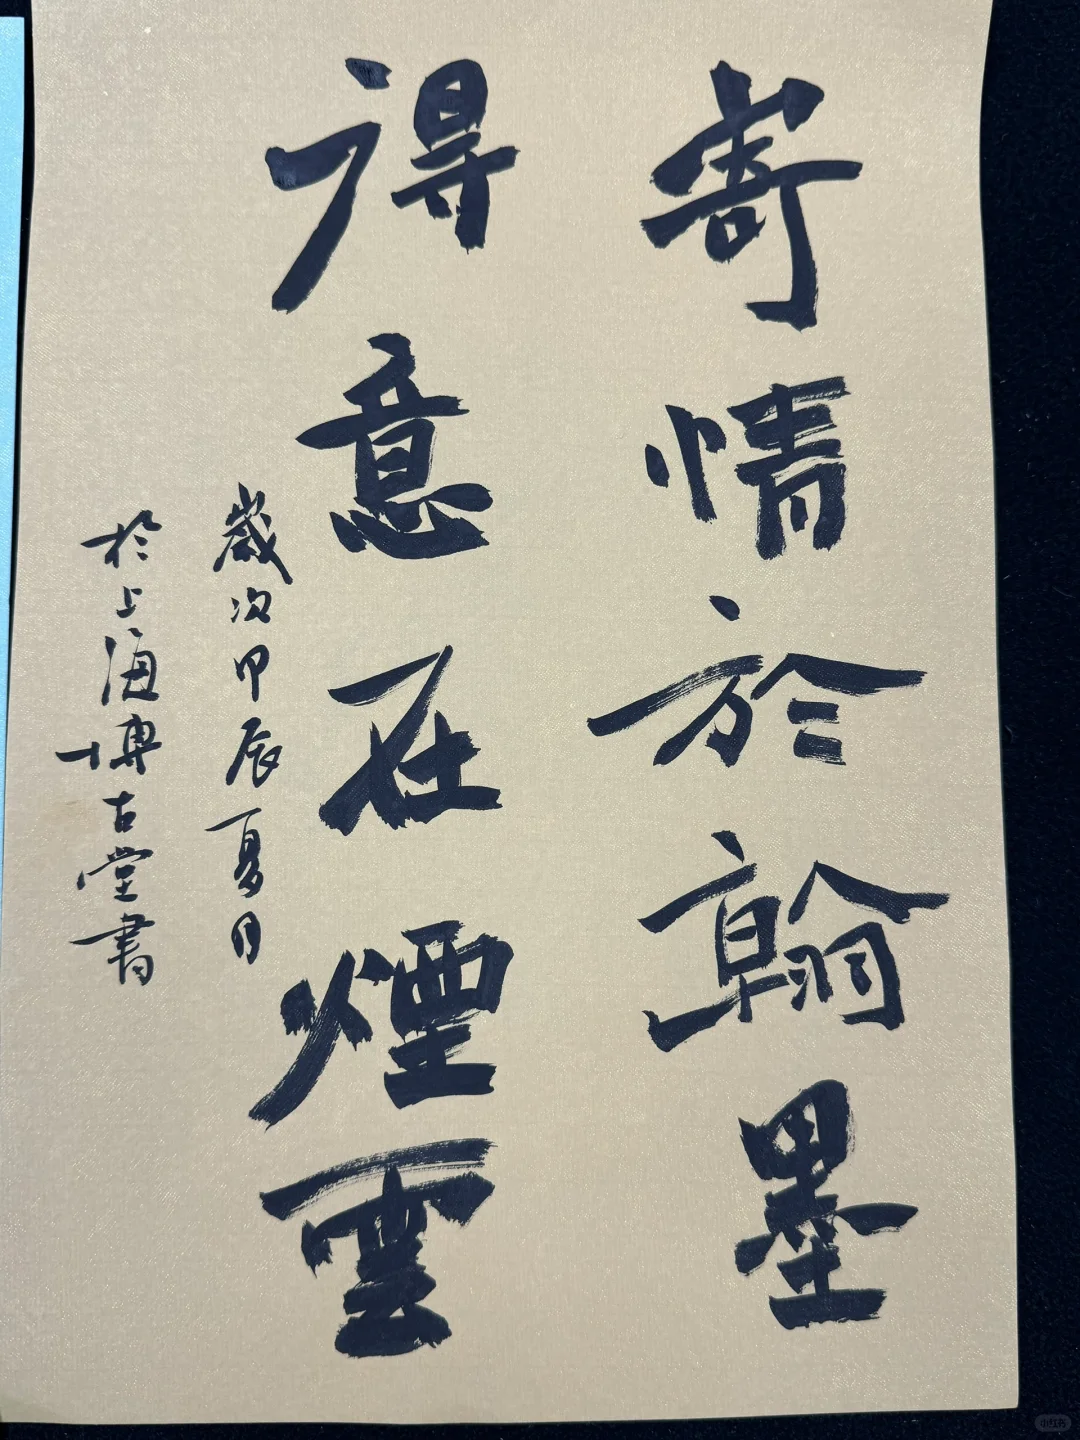 寄情於翰墨
得意在煙雲
歲次甲辰夏月
於上海博古堂書
小红书